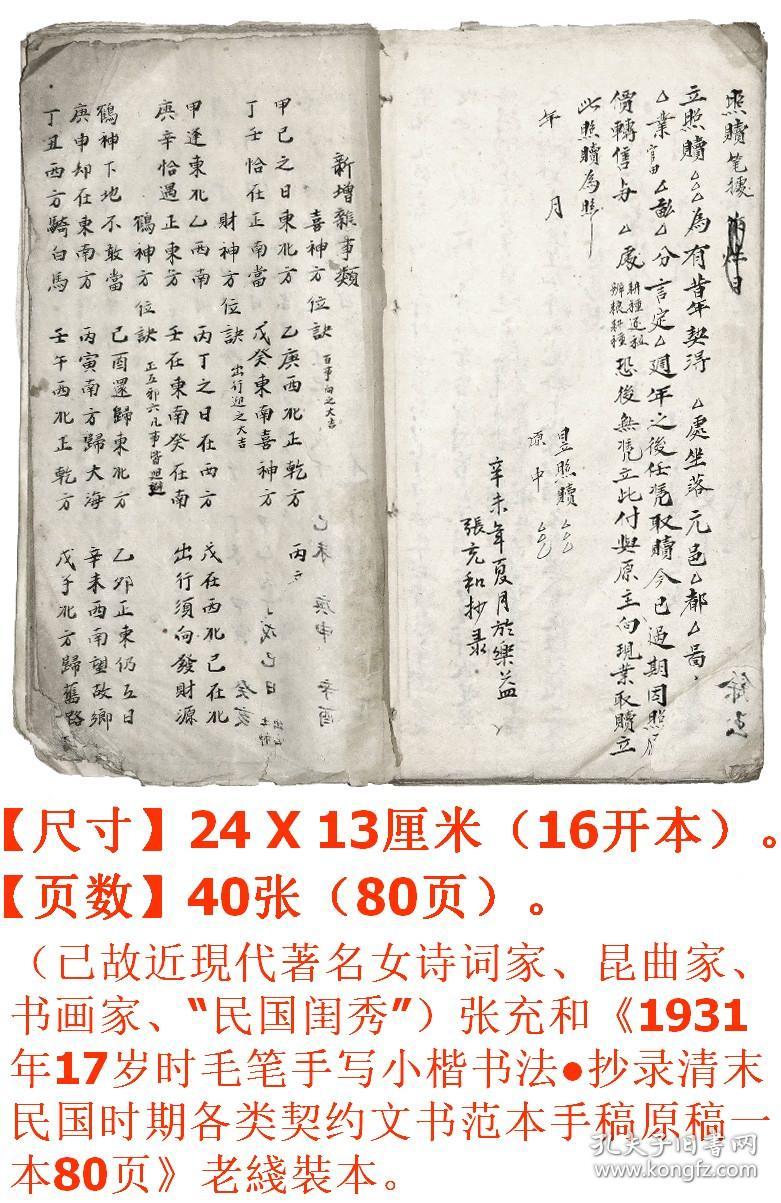 照贖笔據
立照贖△△為有昔年契得 △處坐落元邑△都△啚
△業官田△畝△分言定△週年之後任凭取贖今已過期因照原
價轉售与△處耕種还租辦粮耕種恐後無凭立此付與原主向現業取贖立
此照贖為照
年 月
立照贖 △△
原中 △△
辛未年夏月於樂益
張充和抄录
新增雜事類
喜神方位訣 百事向之大吉
甲已之日東北方 乙庚西北正乾方 丙
丁壬恰在正南當 戊癸東南喜神方
財神方位訣 出行迎之大吉
甲逢東北乙西南 丙丁之日在西方 戊在西北已在北
庚辛恰遇正東方 壬在東南癸在南 出行須向發財源
鶴神方位訣
鶴神下地不敢當 己酉還歸東北方 乙卯正東仍五日
庚申却在東南方 丙寅南方歸大海 辛未西南望故鄉
丁丑西方騎白馬 壬午西北正乾方 戊子北方歸舊路
【尺寸】24 X 13厘米（16开本）。
【页数】40张（80页）。
（已故近現代著名女诗词家、昆曲家、
书画家、“民国闺秀”）张充和《1931
年17岁时毛笔手写小楷书法●抄录清末
民国时期各类契约文书范本手稿原稿一
本80页》老綫裝本。
孔夫子旧书网
www.kongfz.com